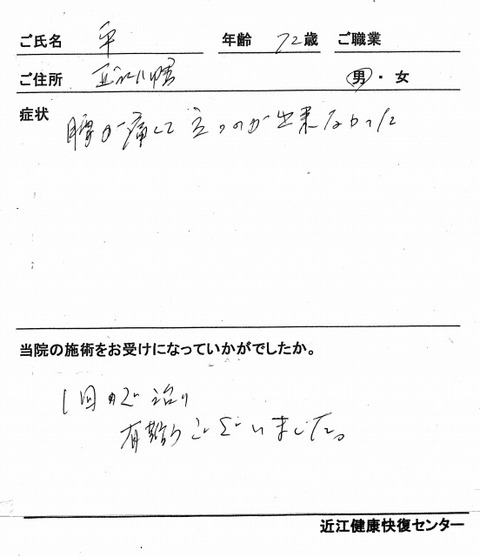 ご氏名 平 年齢 72歳 ご職業
ご住所 近江八幡 男・女
症状
腰が痛くて立つのが出来なかった
当院の施術をお受けになっていかがでしたか。
1回ので治り
有難うございました。
近江健康快復センター